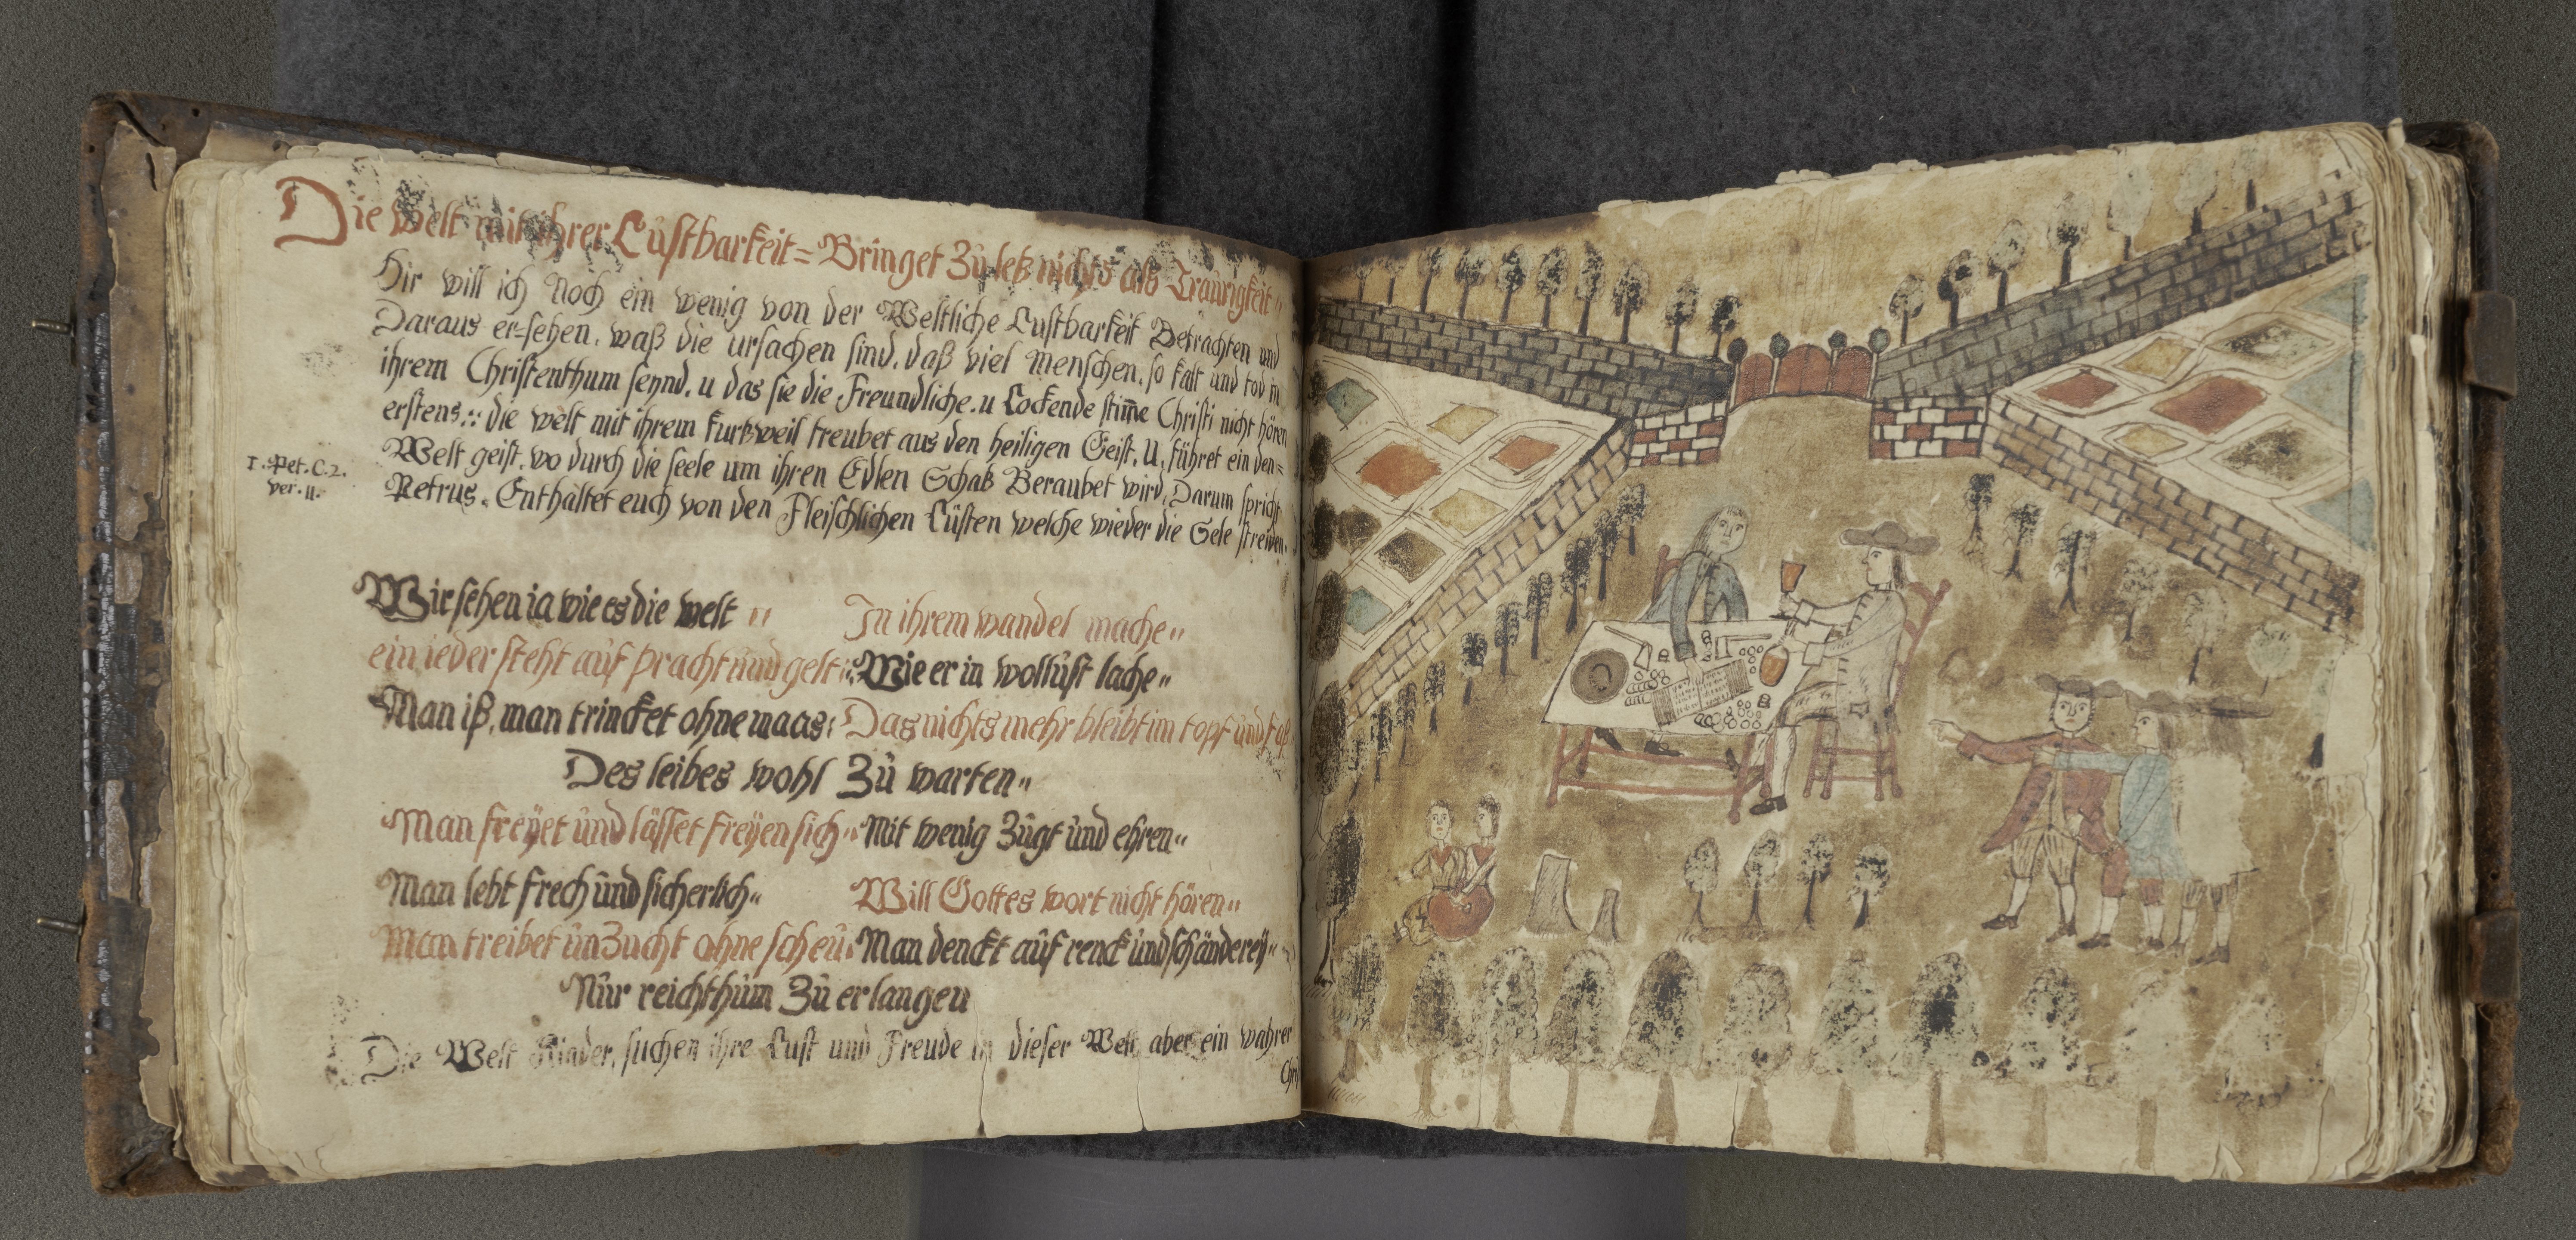 Die Welt mit ihrer Lůstbarkeit= Bringet Zů letz nichts als Traůrigkeit"
Hir will ich Noch ein wenig von der Weltliche Lustbarkeit Betrachten und
Daraus er=sehen, waß die ursachen sind, daß viel Menschen, so kalt und tod in
ihrem Christenthum seynd, u das sie die Freundliche, u Lockende stim̄e Christi nicht hören
erstens.:: die welt mit ihrem kurtzweil treubet aus den heiligen Geist, U, führet ein den=
Welt geist, wo durch die seele um ihren Edlen Schatz Beraubet wird, Darum spricht
1. Pet. C. 2.
ver. 11.
Petrus. Enthaltet euch von den Fleischlichen Lüsten welche wieder die Sele streiden.
Wir sehen ia wie es die welt " In ihrem wandel mache"
ein ieder steht aůf pracht ůnd gelt": Wie er in wollůst lache"
Man iß, man trincket ohne maas: Das nichts mehr bleibt im topf ůnd
Des leibes wohl Zů warten"
Man freÿet ůnd låsset freÿen sich" Mit wenig Zůgt ůnd ehren"
Man lebt frech ůnd sicherlich" Will Gottes wort nicht hören"
Man treibet ůnZucht ohne scheů: Man denckt aůf renck ůnd schånderey"
Nůr reichthům Zů erlangen
Die Welt Kinder, suchen ihre Lust und Freude in dieser Welt aber ein wahrer
Chri